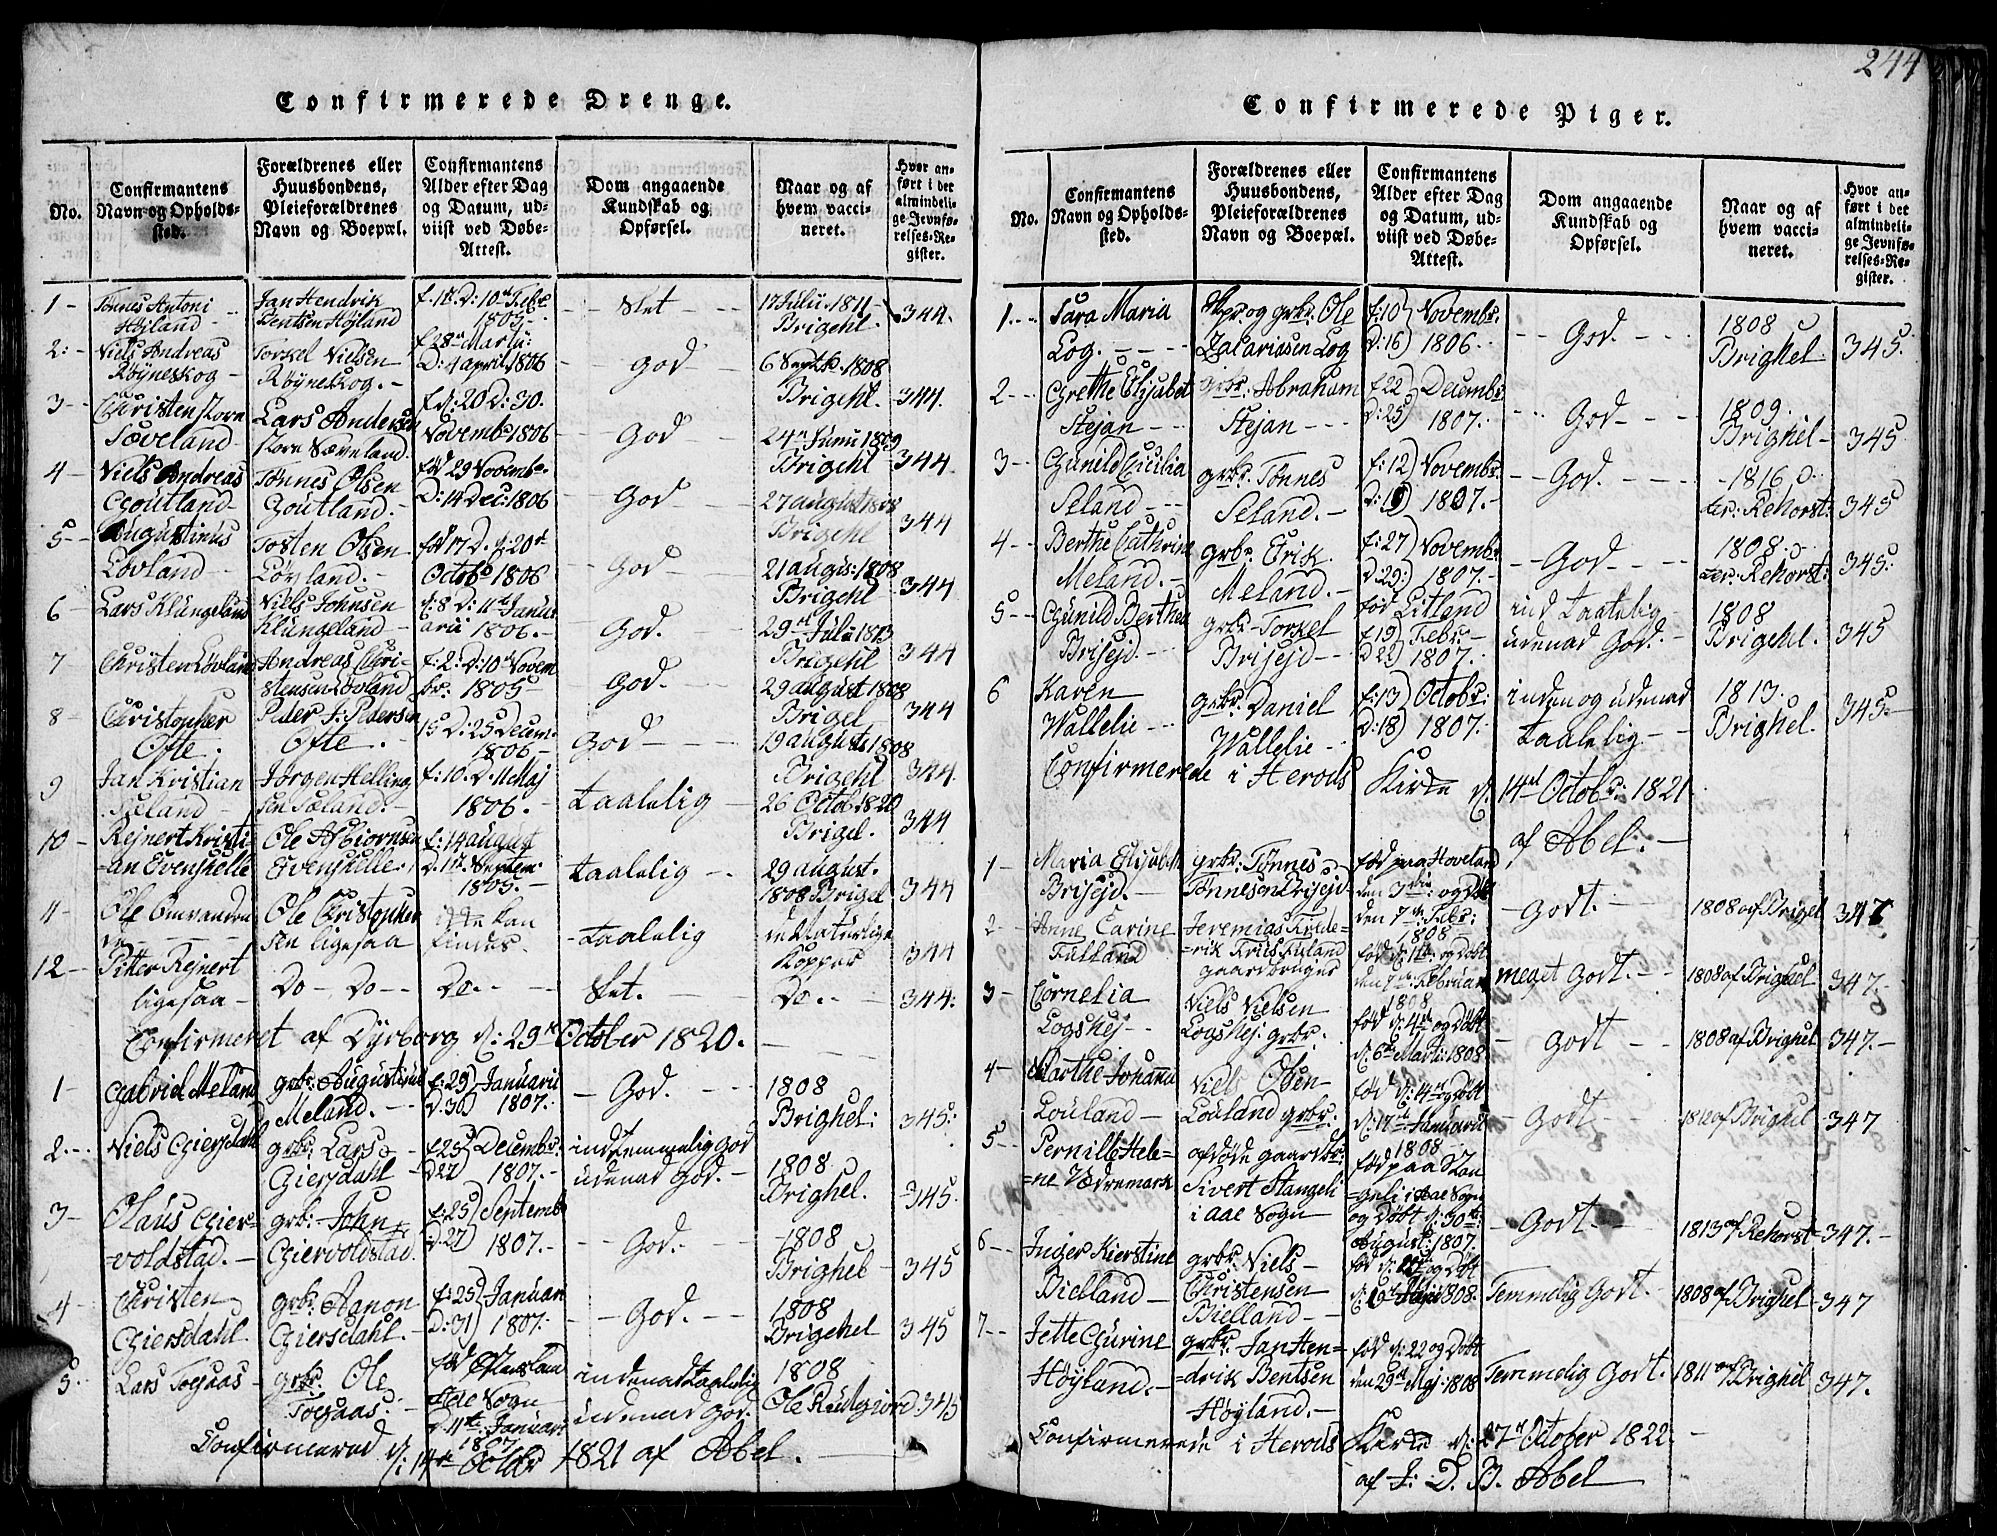 Confirmerede Drenge.
No.
Confirmantens
Navn og Opholds-
sted.
Forældrenes eller
Huusbondens,
Pleieforældrenes
Navn og Boepæl.
Confirmantens
Alder efter Dag
og Datum, ud-
viist ved Døbe-
Attest.
Dom angaaende
Kundskab og
Opførsel.
Naar og af
hvem vacci-
neret.
Hvor an-
ført i det
almindeli-
ge Jevnfø-
relses-Re-
gister.
1- Tønnes Antoni
Høyland
Jan Hendrik
Bentsen Høyland
f. 1te D: 10de Febr
1805
Slet
17 Julii 1811
Brigehl.
344.
2: Niels Andreas
Røyneskog
Torkel Nielsen
Røyneskog.
f 28de Martii
D: 4 april 1806
God
6 Septb 1808
Brigehl.
344.
3 Christen store
Sæveland
Lars Andersen
store Sæveland
f d: 20 D: 30.
Novemb 1806
God
24de Junii 1809
Brigehl
344.
4 Niels Andreas
Goutland
Tønnes Olsen
Goutland
fød 29 Novemb
D: 14 Dec: 1806
God
27 august 1808
Brigehl
344
5 Augustinus
Løvland
Tosten Olsen
Løvland.
fød 17 D. d: 20de
Octobr 1806
God
21 augus: 1808
Brigehl
344
6 Lars Klungeland
Niels Johnsen
Klungeland
f: 8 D: 11te Janu
arii 1806.
God.
29de Julii 1813
Brigehl
344
7 Christen Løvland
Andreas Chri-
stensen Løvland
f: 2: D: 10de Novem
br: 1805
God.
29 august 1808
Brigel
344
8 Christopher
Ofte.
Peder J: Pedersen
Ofte.
15 D: 25 Decem.
1806
God
19 august 1808
Brigehl
344.
9 Jan Kristian
Søeland
Jørgen Helling
sen Søeland.
f: 10. D. 11 Maj
1806.
taalelig
26 Octob 1820
Brigel.
344
10 Rejnert Kristi
an Evenshelle
Ole Asbiørnsen
Evenshelle.
f: 14 august
D. 11te Septem
1805.
taalelig
29 august.
1808 Brigel
344
11 Ole Omvanden
de
Ole Christopher
sen ligesaa
ikke kan
findes.
taalelig
de Naturlige
Kopper
344
12 Pitter Rejnert
ligesaa
Do Do
Do.
Slet.
Do.
344:
Confirmeret af Dyrborg d: 29de October 1820.
1 Gabriel Meland
grbr: Augustinus
Meland.
f: 29 Januarii
D: 30 1807.
God.
1808
Brighel:
345:
2. Niels Giersdahl
grbr: Lars
Giersdahl
f: 25 Decembr:
D 27 1807.
ind temmelig God
udenad God.
1808
Brighel.
345.
3 Olaus Gier-
voldstad.
grb: John
Giervoldstad.
f: 25 Septemb
d: 27 1807.
God.
1808
Brighel
345
4 Christen
Giersdahl.
grbr: Aanon
Giersdahl.
f: 25 Januari
D: 31 1807.
God.
1808
Brigehel
345
5 Lars Toesaas
grbr: Ole
Toesaas.
Aae Sogn
D 11te Januari
1807.
indenad taalelig
udenad God.
1808
345
Confirmered d: 14de Octobr 1821 af Abel.
244
Confirmerede Piger.
No.
Confirmantens
Navn og Opholds-
sted.
Forældrenes eller
Huusbondens,
Pleieforældrenes
Navn og Boepæl.
Confirmantens
Alder efter Dag
og Datum, ud-
viist ved Døbe-
Attest.
Dom angaaende
Kundskab og
Opførsel.
Naar og af
hvem vacci-
neret.
Hvor an-
ført i det
almindeli-
ge Jevnfø-
relses-Re-
gister.
1. Sara Maria
Log.
og grbr: Ole
Zacariasen Log
f: 10 Novembr:
D: 16 1806
God.
1808
Brighel.
345.
2 Grethe Elisabet
Stejan
grbr: Abraham
Stejan
f: 22 Decembr:
D: 25 1807.
God
1809.
Brighel
345
3 Gunild Cicilia
Seland
grbr: Tønnes
Seland.
f: 12 Novembr.
D: 19 1807.
God.
1816
ler: Rehorst:
345
4 Berthe Cathrine
Meland.
grbr Erik
Meland.
f: 27 Novembr
D: 29: 1807.
God
1808.
ler: Rehorst:
345:
5 Gunild Berthea
Brisejd.
grbr Torkel
Brisejd
fød Litland
f 19 Febr:
D 22 1807.
ind taalelig
udenad God.
1808
Brigehl.
345
6 Karen
Wallelie
grbr: Daniel
Wallelie
f: 13 Octobr:
D: 18 1807.
inden og udenad
taalelig
1813.
Brighel.
345.
Confirmerede i Herods Kirke d: 14de Octobr: 1821
af Abel:
1 Maria Elisabeth
Brisejd.
grbr: Tønnes
Tønnesen Brisejd
fød paa Hoveland
den 3die og Døbt
den 7de Febr:
1808
Godt.
1808 af Brigel
347
2 Anne Carine
Fuland
Jeremias Frede-
rik Friis Fuland
gaardbruger
fød d: 1te og Døbt
den 7de Februari
1808
meget Godt.
1808 af Brighel
347.
3 Cornelia
Logshej
Niels Nielsen
Logshej grbr.
fød d: 4de og Døbt
d: 6te Marti: 1808
Godt
1808 af Brighel
347.
4 Marthe Johana
Louland
Niels Olsen
Louland grbr.
fød d: 14de og Døbt
d: 17de Januarii
1808
Godt
1812 af Brighel
347
5 Pernille Hele-
ne Vedremark
afdøde gaardbr:
Sivert Stangeli
i Aae Sogn
fød paa Stan
geli i Aae Sogn
og Døbt d: 30te
August: 1807.
Godt.
1813 af Rehorst
347.
6 Inger Kierstine
Bielland
grbr. Niels
Christensen
Bielland
1808.
Temmelig Godt.
1808 af Brighel
347
7 Jette Gurine
Høyland.
grbr. Jan Hen-
drik Bentsen
Høyland.
fød d: 22 og Døbt
den 29de Maj: 1808
Temmelig Godt.
1811 af Brighel
347.
Confirmerede i Herods Kirke d: 27de October 1822.
af J: D. B. Abel